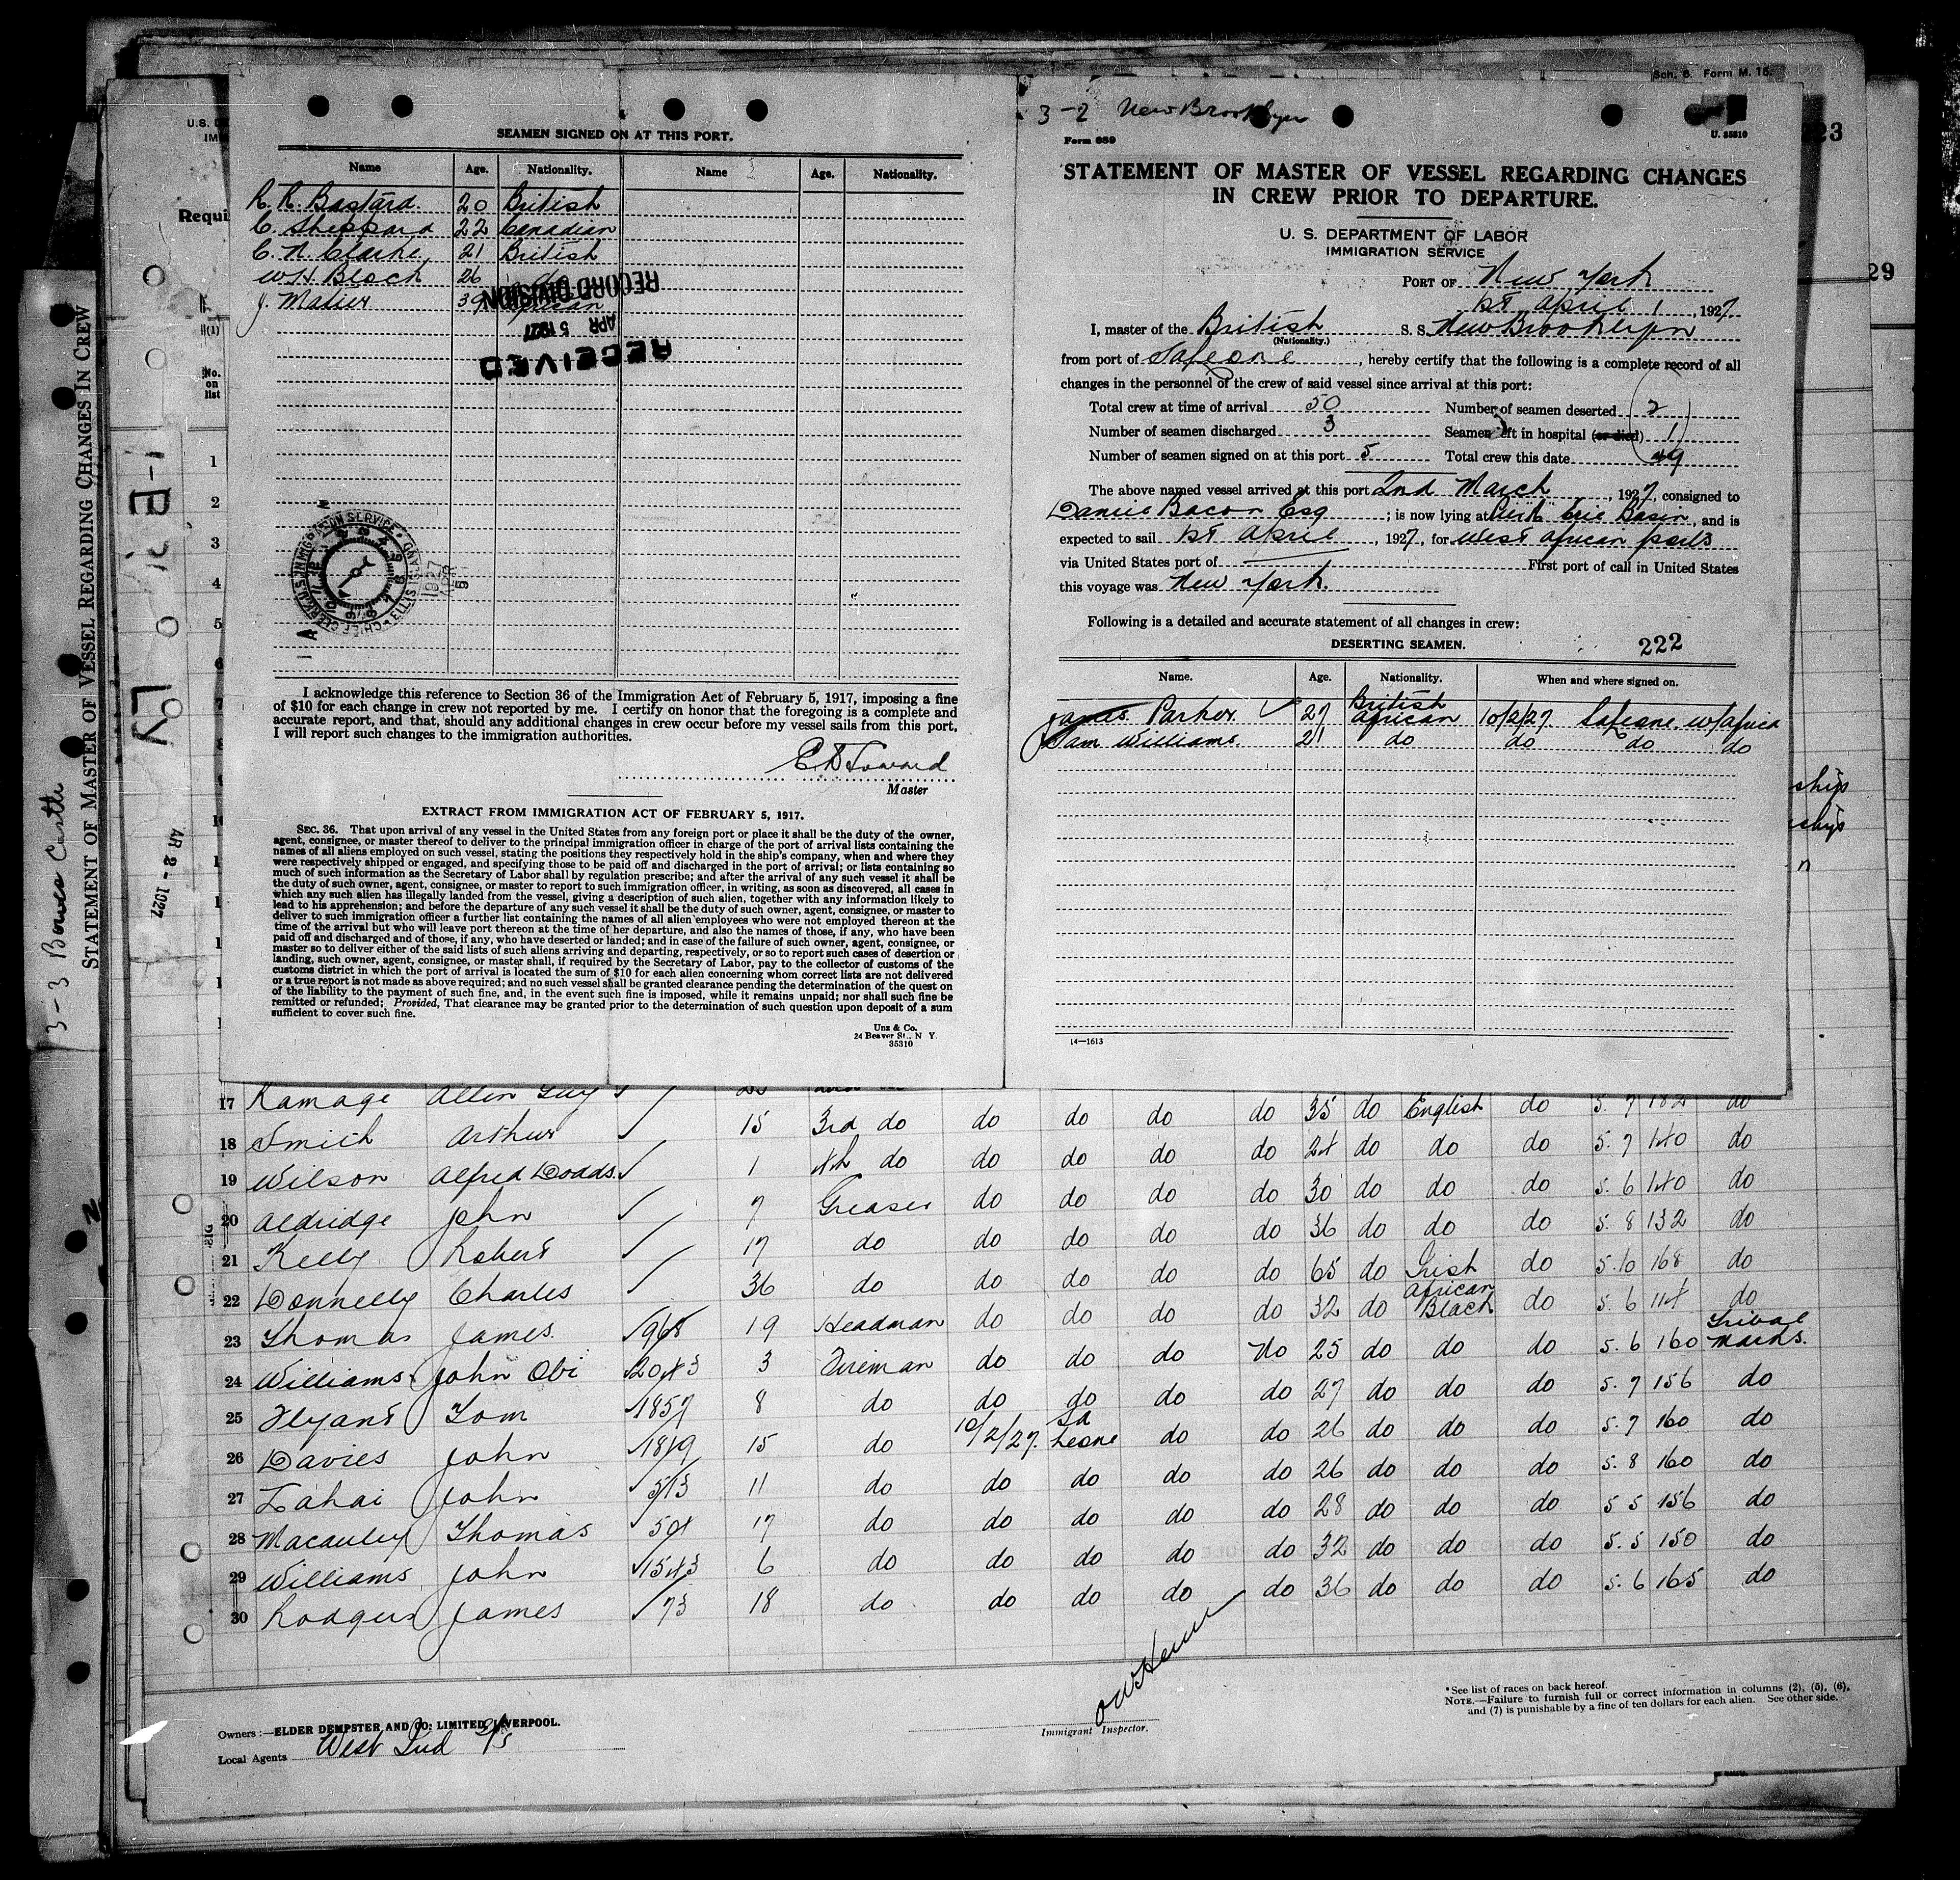 Sch. 6. Form M. 15.
SEAMEN SIGNED ON AT THIS PORT.
Name Age. Nationality. Name Age. Nationality.
R. R. Bastard. 20 British
C. Sheppard 22 Canadian
C. N. Clarke 21 British
W. H. Block 26 do
J. Matier 39
RECORD DIVISION
APR 5 1927
RECEIVED
I acknowledge this reference to Section 36 of the Immigration Act of February 5, 1917, imposing a fine
of $10 for each change in crew not reported by me. I certify on honor that the foregoing is a complete and
accurate report, and that, should any additional changes in crew occur before my vessel sails from this port,
I will report such changes to the immigration authorities.
Master
EXTRACT FROM IMMIGRATION ACT OF FEBRUARY 5, 1917.
SEC. 36. That upon arrival of any vessel in the United States from any foreign port or place it shall be the duty of the owner,
agent, consignee, or master thereof to deliver to the principal immigration officer in charge of the port of arrival lists containing the
names of all aliens employed on such vessel, stating the positions they respectively hold in the ship's company, when and where they
were respectively shipped or engaged, and specifying those to be paid off and discharged in the port of arrival; or lists containing so
much of such information as the Secretary of Labor shall by regulation prescribe; and after the arrival of any such vessel it shall be
the duty of such owner, agent, consignee, or master to report to such immigration officer, in writing, as soon as discovered, all cases in
which any such alien has illegally landed from the vessel, giving a description of such alien, together with any information likely to
lead to his apprehension; and before the departure of any such vessel it shall be the duty of such owner, agent, consignee, or master to
deliver to such immigration officer a further list containing the names of all alien employees who were not employed thereon at the
time of the arrival but who will leave port thereon at the time of her departure, and also the names of those, if any, who have been
paid off and discharged and of those, if any, who have deserted or landed; and in case of the failure of such owner, agent, consignee, or
master so to deliver either of the said lists of such aliens arriving and departing, respectively, or so to report such cases of desertion or
landing, such owner, agent, consignee, or master shall, if required by the Secretary of Labor, pay to the collector of customs of the
customs district in which the port of arrival is located the sum of $10 for each alien concerning whom correct lists are not delivered
or a true report is not made as above required; and no such vessel shall be granted clearance pending the determination of the quest on
of the liability to the payment of such fine, and, in the event such fine is imposed, while it remains unpaid; nor shall such fine be
remitted or refunded; Provided, That clearance may be granted prior to the determination of such question upon deposit of a sum
sufficient to cover such fine.
Unz & Co.
24 Beaver St., N Y.
35310
3-2 New Brooklyn
Form 689
U. 35310
STATEMENT OF MASTER OF VESSEL REGARDING CHANGES
IN CREW PRIOR TO DEPARTURE.
U. S. DEPARTMENT OF LABOR
IMMIGRATION SERVICE
PORT OF New York
1st April 1, 1927.
I, master of the British S. S. New Brooklyn
(Nationality.)
from port of Saleone, hereby certify that the following is a complete record of all
changes in the personnel of the crew of said vessel since arrival at this port:
Total crew at time of arrival 50 Number of seamen deserted 2
Number of seamen discharged 3 Seamen left in hospital (or died) 1
Number of seamen signed on at this port 5 Total crew this date 49
The above named vessel arrived at this port 2nd March, 1927, consigned to
Daniel Bacon Esq; is now lying at Erie Basin, and is
expected to sail 1st April, 1927, for West African ports
via United States port of First port of call in United States
this voyage was New York.
Following is a detailed and accurate statement of all changes in crew:
DESERTING SEAMEN. 222
Name. Age. Nationality. When and where signed on.
James Parker 27 British African 10/2/27 Saleone w/africa
Sam Williams. 21 do do do do
14—1613
STATEMENT OF MASTER OF VESSEL REGARDING CHANGES IN CREW
AR 2 - 1927
17 Ramage Allen Guy 35 do English do 5. 7 182 do
18 Smith Arthur 15 3rd do do do do do 24 do do do 5. 7 140 do
19 Wilson Alfred Dodds 1 4th do do do do do 30 do do do 5. 6 140 do
20 Aldridge John 7 Greaser do do do do 36 do do do 5. 8 132 do
21 Kelly Robert 17 do do do do do 65 do Irish do 5. 10 168 do
22 Donnelly Charles 36 do do do do do 32 do African Black do 5. 6 114 do
23 Thomas James. 968 19 Headman do do do No 25 do do do 5. 6 160 Tribal marks.
24 Williams John Obi 2043 3 Fireman do do do do 27 do do do 5. 7 156 do
25 Flyant Tom 1857 8 do do do do do 26 do do do 5. 7 160 do
26 Davies John 1819 15 do 10/2/27. Sa Leone do do 26 do do do 5. 8 160 do
27 Lahai John 513 11 do do do do do 28 do do do 5 5 156 do
28 Macauley Thomas 591 17 do do do do do 32 do do do 5. 5 150 do
29 Williams John 1543 6 do do do do do 36 do do do 5. 6 165 do
30 Rodgers James 73 18 do do do do
Owners:—ELDER DEMPSTER AND CO. LIMITED, LIVERPOOL.
Local Agents West Ind
Immigrant Inspector.
*See list of races on back hereof.
NOTE.—Failure to furnish full or correct information in columns (2), (5), (6),
and (7) is punishable by a fine of ten dollars for each alien. See other side.